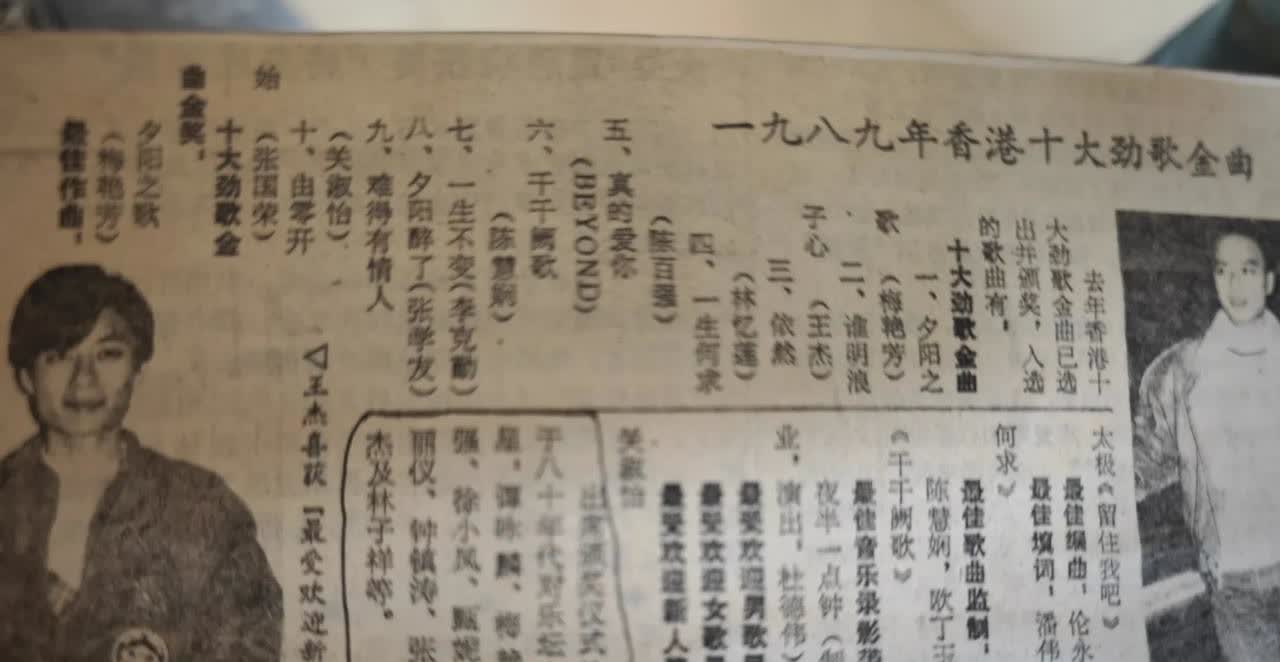 一九八九年香港十大劲歌金曲
去年香港十
大劲歌金曲已选
出并颁奖，入选
的歌曲有：
十大劲歌金曲
一、夕阳之
歌（梅艳芳）
二、谁明浪
子心（王杰）
三、依然
（林忆莲）
四、一生何求
（陈百强）
五、真的爱你
(BEYOND)
六、千千阙歌
（陈慧娴）
七、一生不变（李克勤）
八、夕阳醉了（张学友）
九、难得有情人
（关淑怡）
十、由零开
始
（张国荣）
十大劲歌金
曲金奖：
夕阳之歌
（梅艳芳）
最佳作曲：
太极《留住我吧》
最佳编曲：伦永
最佳填词：潘伟
何求》
最佳歌曲监制：
陈慧娴，欧丁玉
《千千阙歌》
最佳音乐录影
夜半一点钟
业，演出：杜德伟）
最受欢迎男歌
最受欢迎女歌
最受欢迎新人
关淑怡
出席颁奖仪式
于八十年代对乐坛
星，谭咏麟、梅
强、徐小凤、甄妮
丽仪、钟镇涛、张
杰及林子祥等。
◁王杰喜获「最受欢迎新